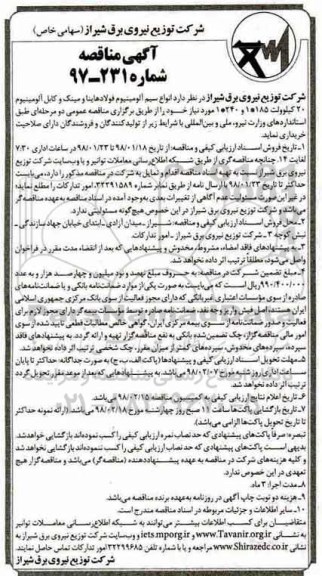 شرکت توزیع نیروی برق شیراز (سهامی خاص)
آگهی مناقصه
شماره ۲۳۱-۹۷
شرکت توزیع نیروی برق شیراز در نظر دارد انواع سیم آلومینیوم فولادهاینا و مینک و کابل آلومینیوم
۲۰ کیلوولت ۱۸۵*۱ و ۲۴۰*۱ مورد نیاز خود را از طریق برگزاری مناقصه عمومی دو مرحله‌ای طبق
استانداردهای وزارت نیرو، ملی و بین‌المللی با شرایط زیر از تولیدکنندگان و فروشندگان دارای صلاحیت
خریداری نماید.
۱-تاریخ فروش اسناد ارزیابی کیفی و مناقصه: از تاریخ ۹۸/۰۱/۱۸ تا تاریخ ۹۸/۰۱/۲۳ در ساعات اداری ۷:۳۰
لغایت ۱۴. چنانچه مناقصه‌گری از طریق شبکه اطلاع‌رسانی معاملات توانیر و یا وب‌سایت شرکت توزیع
نیروی برق شیراز نسبت به تهیه اسناد مناقصه اقدام و تمایل به شرکت در مناقصه مذکور را دارد، می‌بایست
حداکثر تا تاریخ ۹۸/۰۱/۲۳ با ارسال نامه از طریق نمابر شماره ۳۲۲۹۱۵۸۹ امور تدارکات را مطلع نماید؛
در غیر این صورت مسئولیت عدم آگاهی از تغییرات بعدی به‌وجود آمده در اسناد مناقصه به‌عهده مناقصه‌گر
می‌باشد و شرکت توزیع نیروی برق شیراز در این خصوص هیچ‌گونه مسئولیتی ندارد.
۲-محل فروش اسناد ارزیابی کیفی و مناقصه: شیراز-میدان آزادی-ابتدای خیابان جهادسازندگی-
نبش کوچه ۳-شرکت توزیع نیروی برق شیراز-امور تدارکات.
۳-به پیشنهادهای فاقد امضاء، مشروط، مخدوش و پیشنهادهایی که بعد از انقضاء مدت مقرر در فراخوان
واصل می‌شود، مطلقاً ترتیب اثر داده نخواهد شد.
۴-مبلغ تضمین شرکت در مناقصه: به حروف مبلغ نهصد و نود میلیون و چهارصد هزار و به عدد
۹۹۰/۴۰۰/۰۰۰ ریال است که می‌بایست به صورت یکی از موارد ضمانت‌نامه بانکی و یا ضمانت‌نامه‌های
صادره از سوی مؤسسات اعتباری غیربانکی که دارای مجوز فعالیت از سوی بانک مرکزی جمهوری اسلامی
ایران هستند، اصل فیش واریز وجه نقد، ضمانت‌نامه صادره توسط مؤسسات بیمه‌گر دارای مجوز لازم برای
فعالیت و صدور ضمانت‌نامه از سوی بیمه مرکزی ایران، گواهی خالص مطالبات قطعی تایید شده از سوی
امور مالی مناقصه‌گزار، چک تضمین شده بانکی به نفع مناقصه‌گزار تهیه و ارائه گردد. به پیشنهادهای فاقد
سپرده، سپرده‌های مخدوش، سپرده‌های کمتر از میزان مقرر، چک شخصی ترتیب اثر داده نخواهد شد.
۵-مهلت تحویل اسناد ارزیابی کیفی و پیشنهادها (پاکت الف، ب، ج) به صورت جداگانه: حداکثر تا پایان
ساعت اداری روز شنبه مورخ ۹۸/۰۲/۰۷ می‌باشد. به پیشنهادهایی که بعد از موعد مقرر تحویل گردد
ترتیب اثر داده نخواهد شد.
۶-تاریخ اعلام نتایج ارزیابی کیفی به کمیسیون مناقصه ۹۸/۰۲/۱۵ می‌باشد.
۷-تاریخ بازگشایی پاکت‌ها ساعت ۱۱ صبح روز چهارشنبه مورخ ۹۸/۰۲/۱۸ می‌باشد. (ارائه نمونه حداکثر
تا تاریخ تحویل پاکت‌ها الزامی می‌باشد).
تبصره: صرفاً پاکت‌های پیشنهادی که حد نصاب نمره ارزیابی کیفی را کسب نموده‌اند بازگشایی خواهد شد.
بدیهی است پاکت‌های پیشنهادی که حد نصاب ارزیابی کیفی را کسب ننموده‌اند بازگشایی نخواهد شد
و کلیه هزینه‌های شرکت در مناقصه به عهده پیشنهاددهنده (مناقصه‌گر) می‌باشد و مناقصه‌گزار هیچ
تعهدی در این خصوص ندارد.
۸-مدت اجرا: ۳ ماه.
۹-هزینه دو نوبت چاپ آگهی در روزنامه به‌عهده برنده مناقصه می‌باشد.
۱۰-سایر اطلاعات و جزئیات مربوطه در اسناد مناقصه مندرج است.
متقاضیان برای کسب اطلاعات بیشتر می‌توانند به شبکه اطلاع‌رسانی معاملات توانیر
به نشانی www.Tavanir.org.ir و iets.mporg.ir و وب‌سایت شرکت توزیع نیروی برق شیراز به
نشانی www.Shirazedc.co.ir مراجعه و یا با شماره تلفن ۳۲۲۹۹۶۸۵ امور تدارکات تماس حاصل نمایند.
شرکت توزیع نیروی برق شیراز